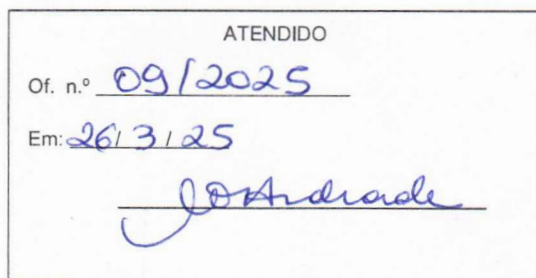 ATENDIDO
Of. n.º 09/2025
Em: 26/3/25
Andrade